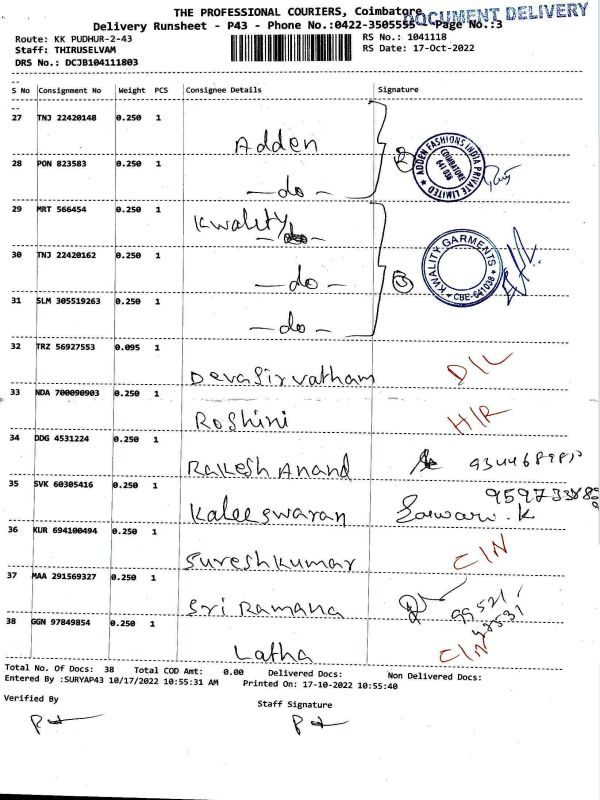 THE PROFESSIONAL COURIERS, Coimbatore
DOCUMENT DELIVERY
Delivery Runsheet - P43 - Phone No.:0422-3505555 Page No.:3
Route: KK PUDHUR-2-43 RS No.: 1041118
Staff: THIRUSELVAM RS Date: 17-Oct-2022
DRS No.: DCJB104111803
S No Consignment No Weight PCS Consignee Details Signature
27 TNJ 22420148 0.250 1 Adden
ADDEN FASHIONS INDIA PRIVATE LIMITED
COIMBATORE
641 038
28 PON 823583 0.250 1 -do-
29 MRT 566454 0.250 1 Kwality
KWALITY GARMENTS
CBE-641038
30 TNJ 22420162 0.250 1 -do-
31 SLM 305519263 0.250 1 -do-
32 TRZ 56927553 0.095 1 Devasirvatham D/L
33 NDA 700090903 0.250 1 Roshini H/R
34 DDG 4531224 0.250 1 Rakesh Anand
35 SVK 60305416 0.250 1 Kaleeswaran
36 KUR 694100494 0.250 1 Sureshkumar C/N
37 MAA 291569327 0.250 1 Sri Ramana 99521
38 GGN 97849854 0.250 1 Latha C/N
Total No. Of Docs: 38 Total COD Amt: 0.00 Delivered Docs: Non Delivered Docs:
Entered By :SURYAP43 10/17/2022 10:55:31 AM Printed On: 17-10-2022 10:55:40
Verified By Staff Signature